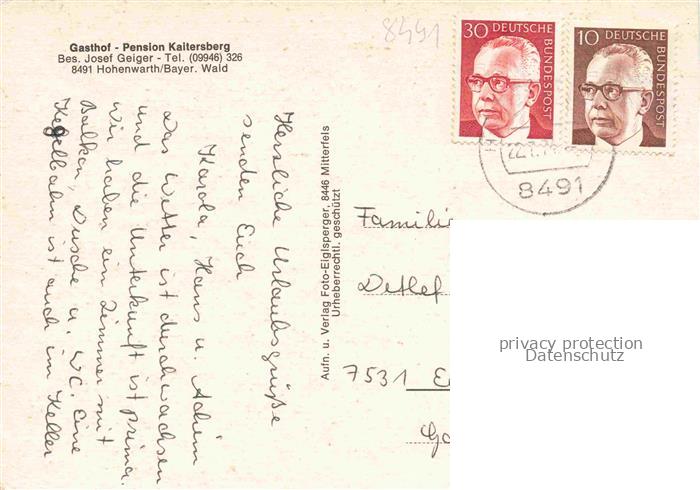 Gasthof - Pension Kaitersberg
Bes. Josef Geiger - Tel. (09946) 326
8491 Hohenwarth/Bayer. Wald
8491
30 DEUTSCHE BUNDESPOST
10 DEUTSCHE BUNDESPOST
8491
Herzliche Urlaubsgrüße
senden Euch
Karola, Hans u. Achim
Das Wetter ist durchwachsen
und die Unterkunft ist prima.
Wir haben ein Zimmer mit
Balkon, Dusche u. WC. Eine
Kegelbahn ist auch im Keller
Aufn. u. Verlag Foto-Eiglsperger, 8446 Mitterfels
Urheberrechtl. geschützt
Famili
Detlef
7531
privacy protection
Datenschutz